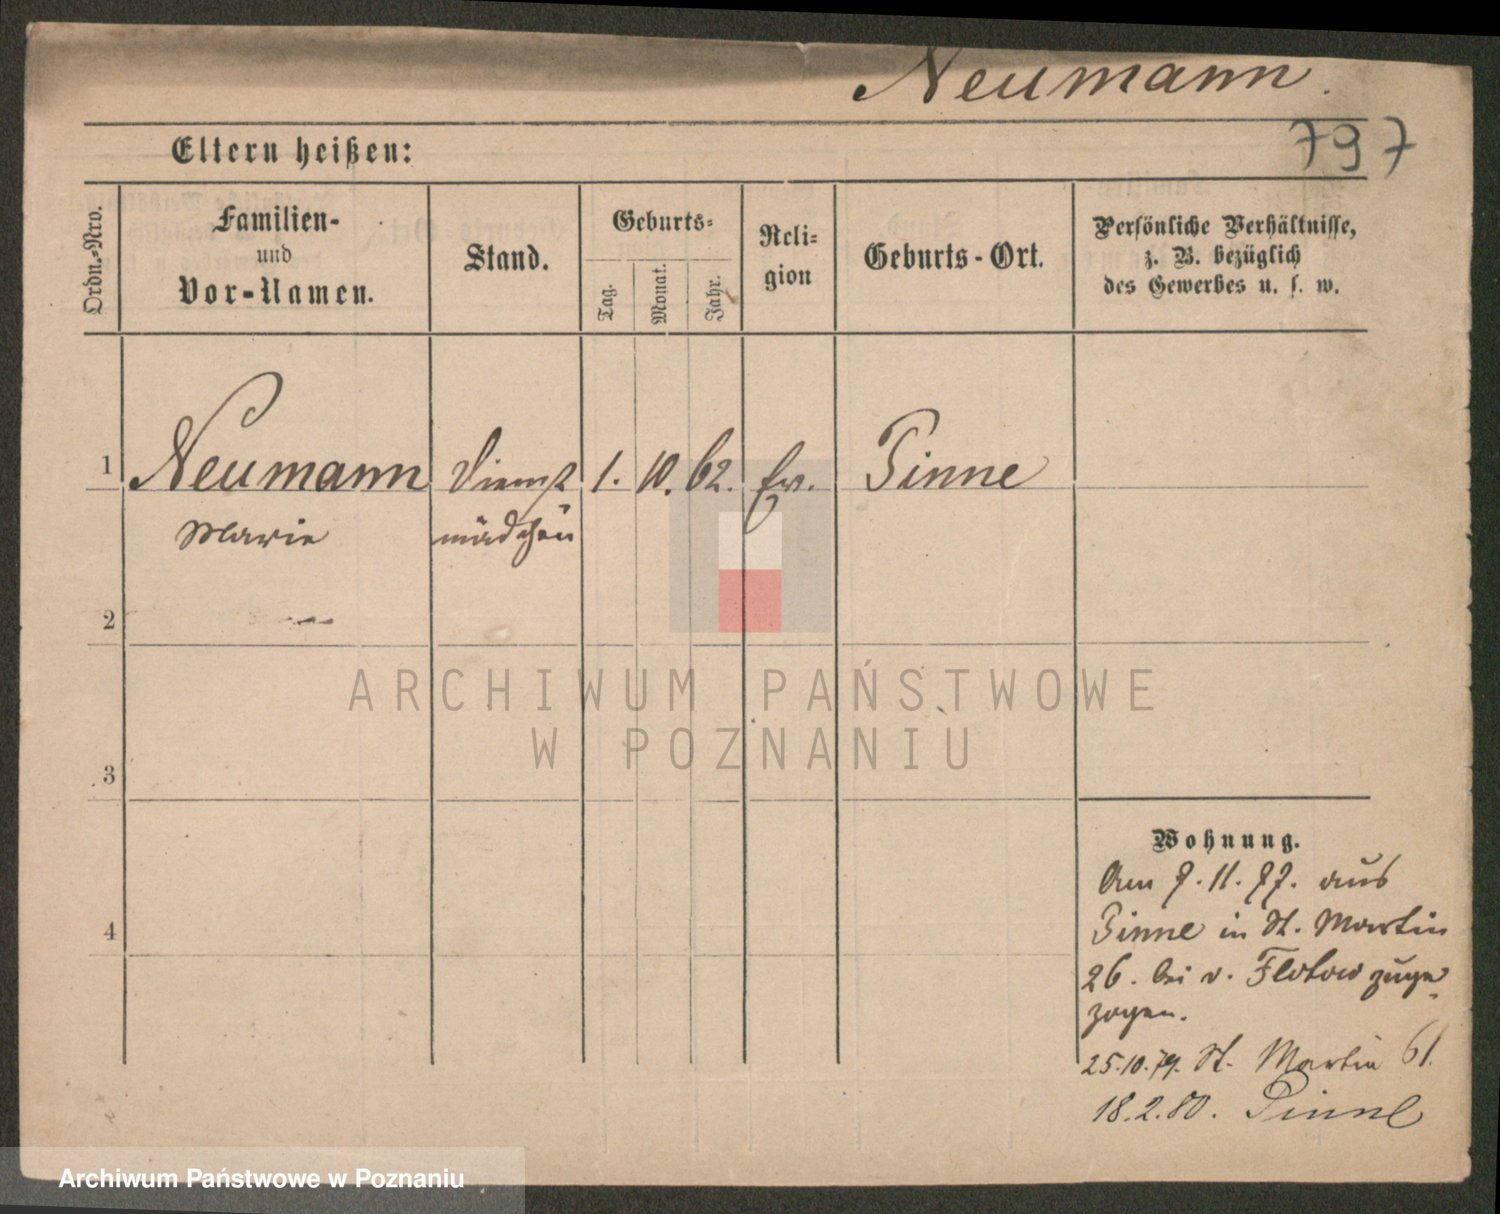 Neumann.
797
Eltern heißen:
Ordn.-Nro.
Familien-
und
Vor-Namen.
Stand.
Geburts-
Tag.
Monat.
Jahr.
Reli-
gion
Geburts-Ort.
Persönliche Verhältnisse,
z. B. bezüglich
des Gewerbes u. s. w.
1 Neumann Dienst 1. 10. 62. Ev. Pinne
Marie mädchen
2
3
4
ARCHIWUM PAŃSTWOWE
W POZNANIU
Wohnung.
Am 7. 11. 77. aus
Pinne in St. Martin
26. bei v. Flotow zuge-
zogen.
25.10.79. St. Martin 61.
18.2.80. Pinne
Archiwum Państwowe w Poznaniu